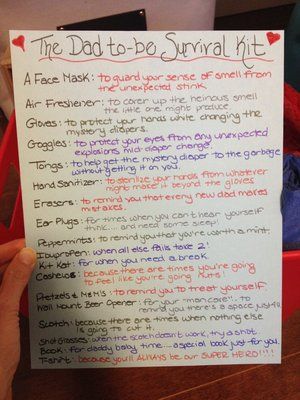 The Dad to-be Survival Kit
A Face Mask: to guard your sense of smell from
the unexpected stink.
Air Freshener: to cover up the heinous smell
the little one might produce
Gloves: to protect your hands while changing the
mystery diapers.
Goggles: to protect your eyes from any unexpected
explosions mid diaper change.
Tongs: to help get the mystery diaper to the garbage
without getting it on you.
Hand Sanitizer: to sterilize your hands from whatever
might make it beyond the gloves
Erasers: to remind you that every new dad makes
mistakes.
Ear Plugs: for times when you can't hear yourself
think.... and need some sleep!
Peppermints: to remind you that you're worth a mint.
Ibuprofen: when all else fails take 2!
Kit Kat: for when you need a break.
Cashews: because there are times you're going
to feel like you're going nuts!
Pretzels & M&M's: to remind you to treat yourself.
Wall Mount Beer Opener: for your "man cave".. to
remind you there's a space just 4 U
Scotch: because there are times when nothing else
is going to cut it.
Shot Glasses: when the scotch doesn't work, try a shot.
Book: for daddy baby time.... a special book just for you.
T-shirt: because you'll ALWAYS be our SUPER HERO!!!!